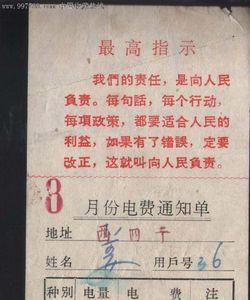 最高指示
我們的责任，是向人民
負责。每句話，每个行动，
每項政策，都要适合人民的
利益，如果有了错誤，定要
改正，这就叫向人民負责。
8
月份电费通知单
地址 西四
姓名 用戶号 36
种别 电量 电费 注